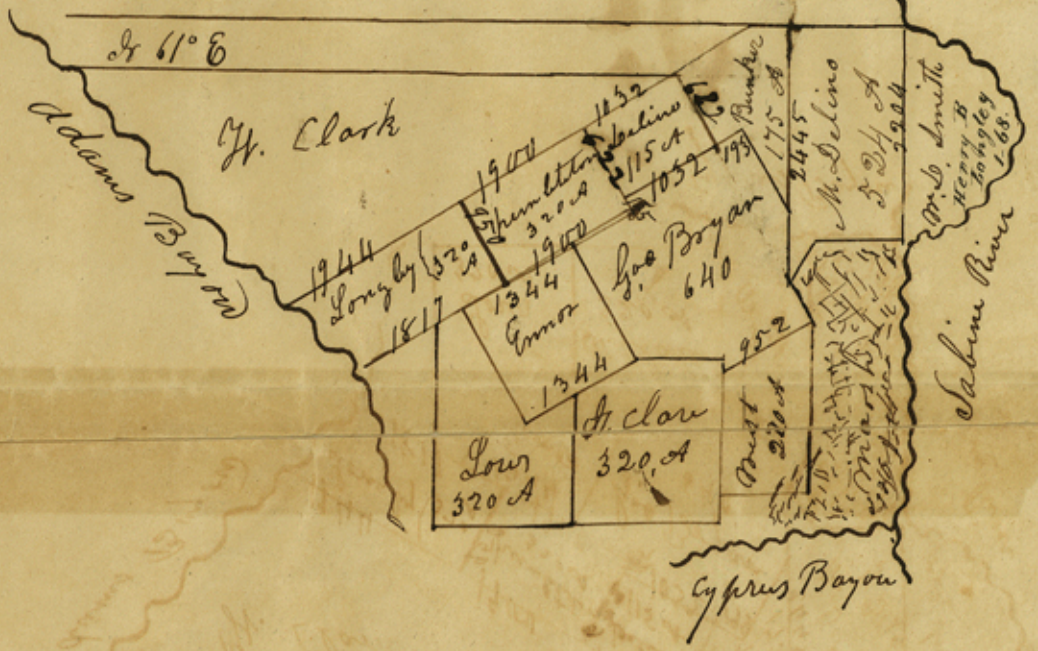 N 61° E
Adams Bayou
H. Clark
1944
Longley
320
A
1817
1900
950
320 A
1900
1032
Delino
115 A
1032
193
Bunker
175 A
2445
M. Delino
524 A
2204
W. D. Smith
Henry B
Longley
1.68.
Sabine River
Geo Bryan
640
1344
Ennor
1344
952
320 A
H. Clare
320, A
West
220 A
Marsh
Cyprus Bayou